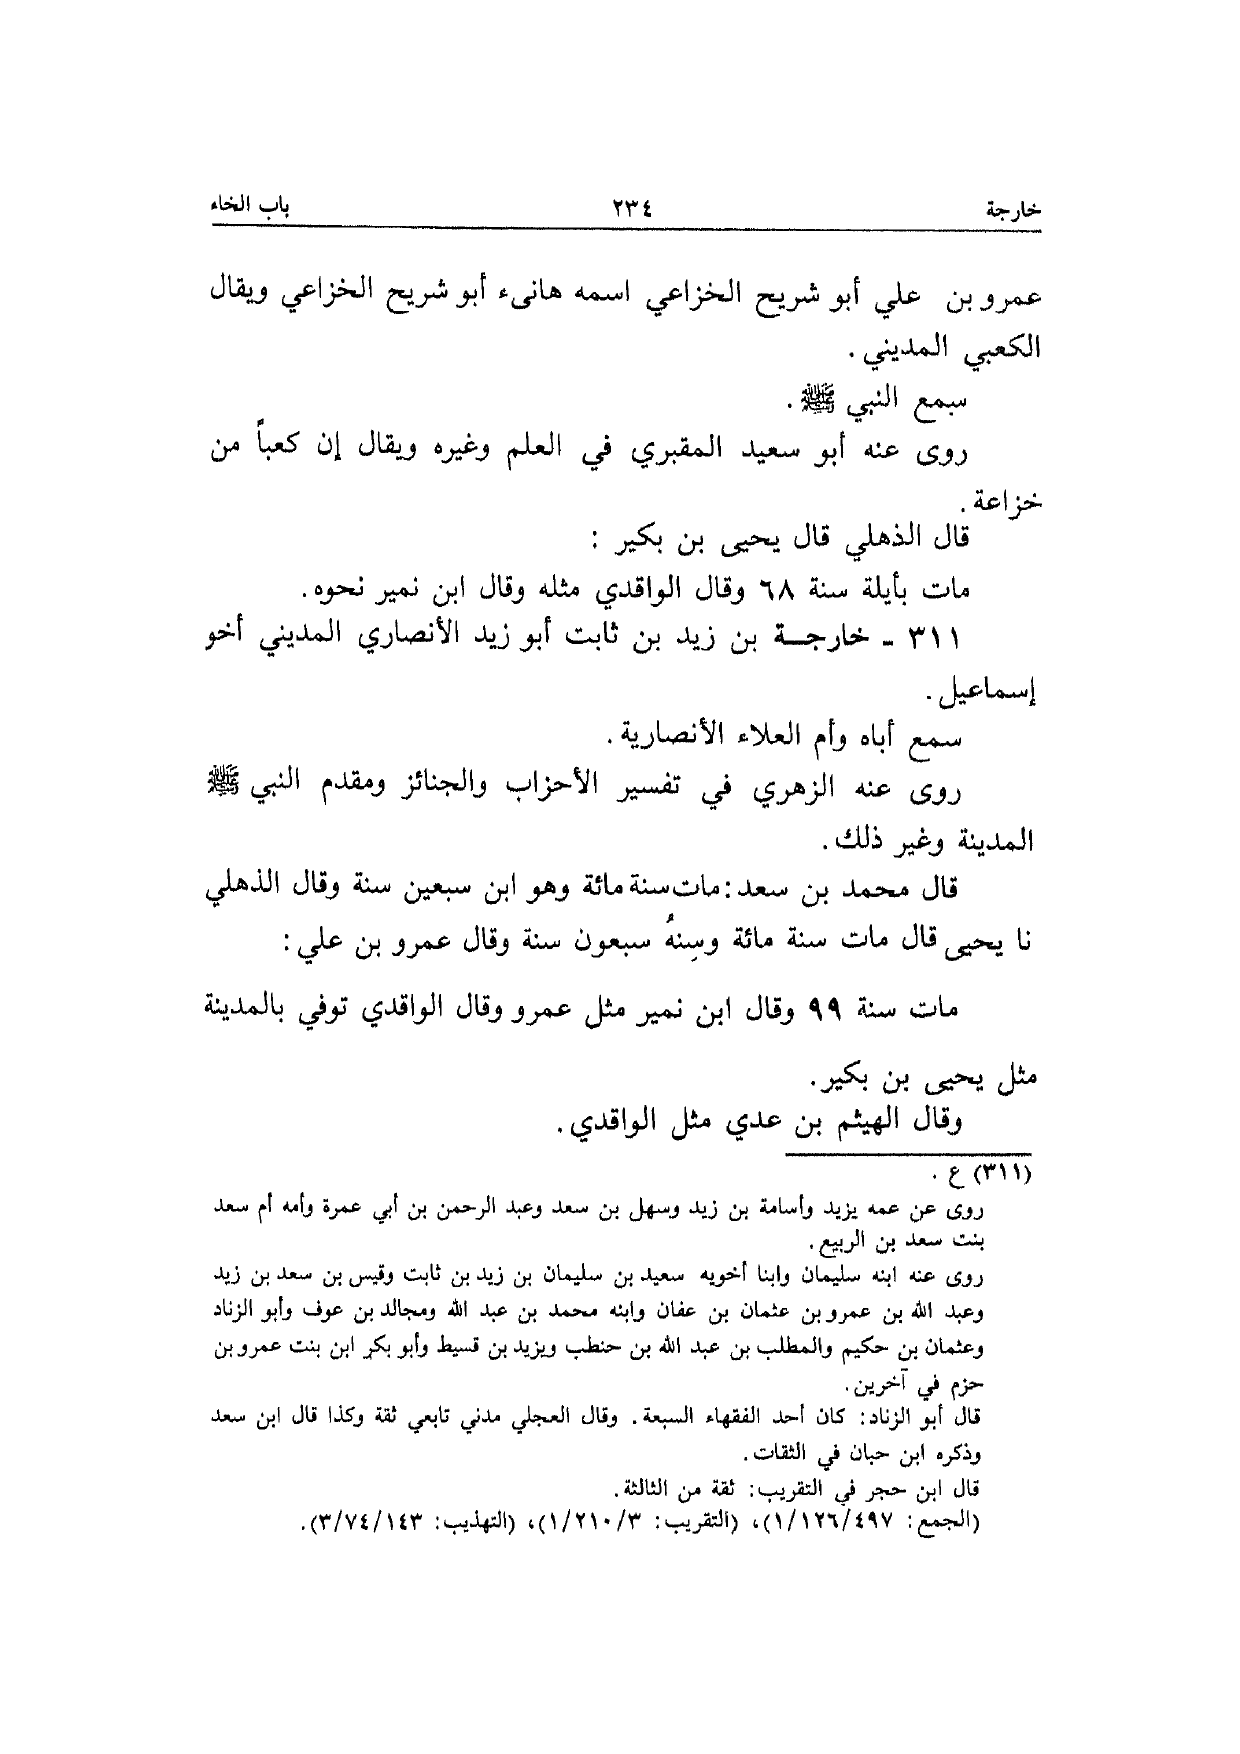 خارجة ٢٣٤ باب الخاء
عمرو بن علي أبو شريح الخزاعي اسمه هانىء أبو شريح الخزاعي ويقال
الكعبي المديني .
سمع النبي ﷺ .
روى عنه أبو سعيد المقبري في العلم وغيره ويقال إن كعباً من
خزاعة .
قال الذهلي قال يحيى بن بكير :
مات بأيلة سنة ٦٨ وقال الواقدي مثله وقال ابن نمير نحوه .
٣١١ - خارجــة بن زيد بن ثابت أبو زيد الأنصاري المديني أخو
إسماعيل .
سمع أباه وأم العلاء الأنصارية .
روى عنه الزهري في تفسير الأحزاب والجنائز ومقدم النبي ﷺ
المدينة وغير ذلك .
قال محمد بن سعد : مات سنة مائة وهو ابن سبعين سنة وقال الذهلي
نا يحيى قال مات سنة مائة وسِنهُ سبعون سنة وقال عمرو بن علي :
مات سنة ٩٩ وقال ابن نمير مثل عمرو وقال الواقدي توفي بالمدينة
مثل يحيى بن بكير .
وقال الهيثم بن عدي مثل الواقدي .
(٣١١) ع .
روى عن عمه يزيد وأسامة بن زيد وسهل بن سعد وعبد الرحمن بن أبي عمرة وأمه أم سعد
بنت سعد بن الربيع .
روى عنه ابنه سليمان وابنا أخويه سعيد بن سليمان بن زيد بن ثابت وقيس بن سعد بن زيد
وعبد الله بن عمرو بن عثمان بن عفان وابنه محمد بن عبد الله ومجالد بن عوف وأبو الزناد
وعثمان بن حكيم والمطلب بن عبد الله بن حنطب ويزيد بن قسيط وأبو بكر ابن بنت عمرو بن
حزم في آخرين .
قال أبو الزناد : كان أحد الفقهاء السبعة . وقال العجلي مدني تابعي ثقة وكذا قال ابن سعد
وذكره ابن حبان في الثقات .
قال ابن حجر في التقريب : ثقة من الثالثة .
(الجمع : ١/١٢٦/٤٩٧)، (التقريب : ١/٢١٠/٣)، (التهذيب : ٣/٧٤/١٤٣) .